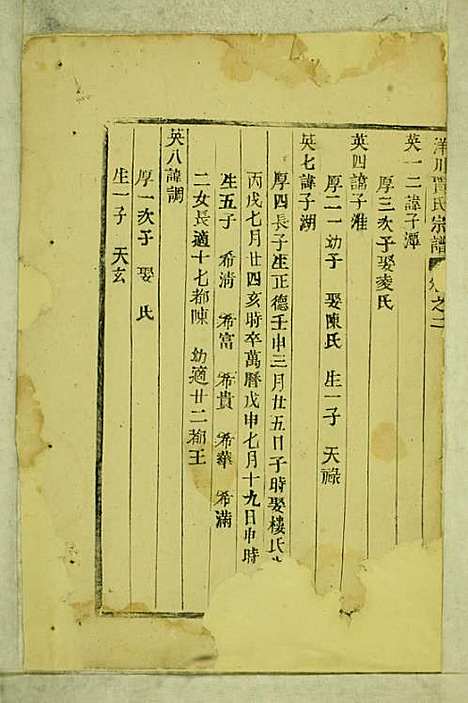 洋川賈氏宗譜 卷之二
英一二諱子潭
厚三次子娶凌氏
英四諱子淮
厚二一幼子 娶陳氏 生一子 天祿
英七諱子湖
厚四長子生正德壬申三月廿五日子時娶樓氏
丙戌七月廿四亥時卒萬曆戊申七月十九日申時
生五子 希淸 希富 希貴 希華 希滿
二女長適十七都陳 幼適廿二都王
英八諱調
厚一次子 娶 氏
生一子 天玄